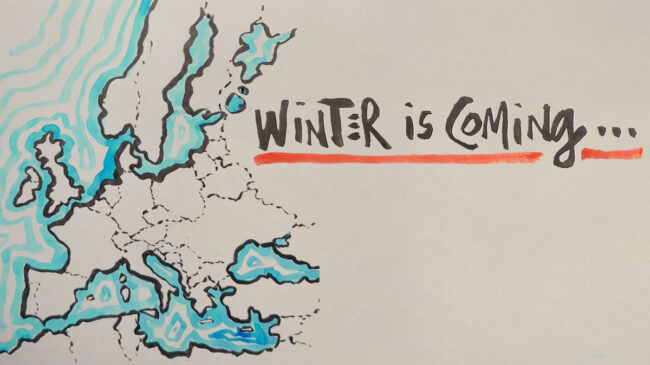 WiNTER is COMiNg...